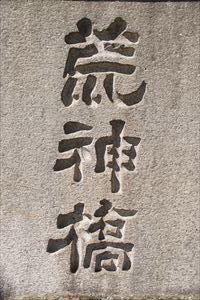 荒神橋